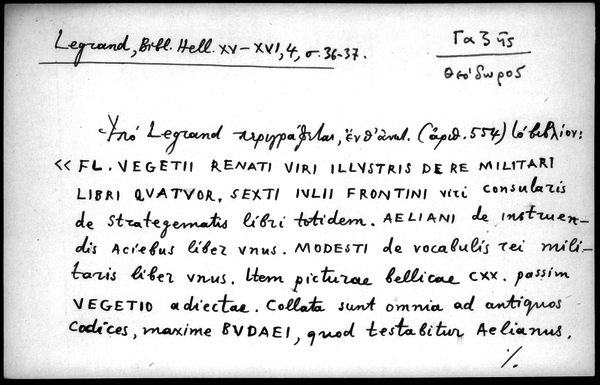 Legrand, Bibl. Hell. XV–XVI, 4, σ. 36-37.
Γαζῆς
Θεόδωρος
Ὑπό Legrand περιγράφεται, ἔνθ' ἀνωτ. (ἀριθ. 554) τό βιβλίον:
<< FL. VEGETII RENATI VIRI ILLVSTRIS DE RE MILITARI
LIBRI QVATVOR. SEXTI IVLII FRONTINI viri consularis
de Strategematis libri totidem. AELIANI de instruen-
dis aciebus liber vnus. MODESTI de vocabulis rei mili-
taris liber vnus. Item picturae bellicae CXX. passim
VEGETIO adiectae. Collata sunt omnia ad antiquos
codices, maxime BVDAEI, quod testabitur Aelianus.
./.